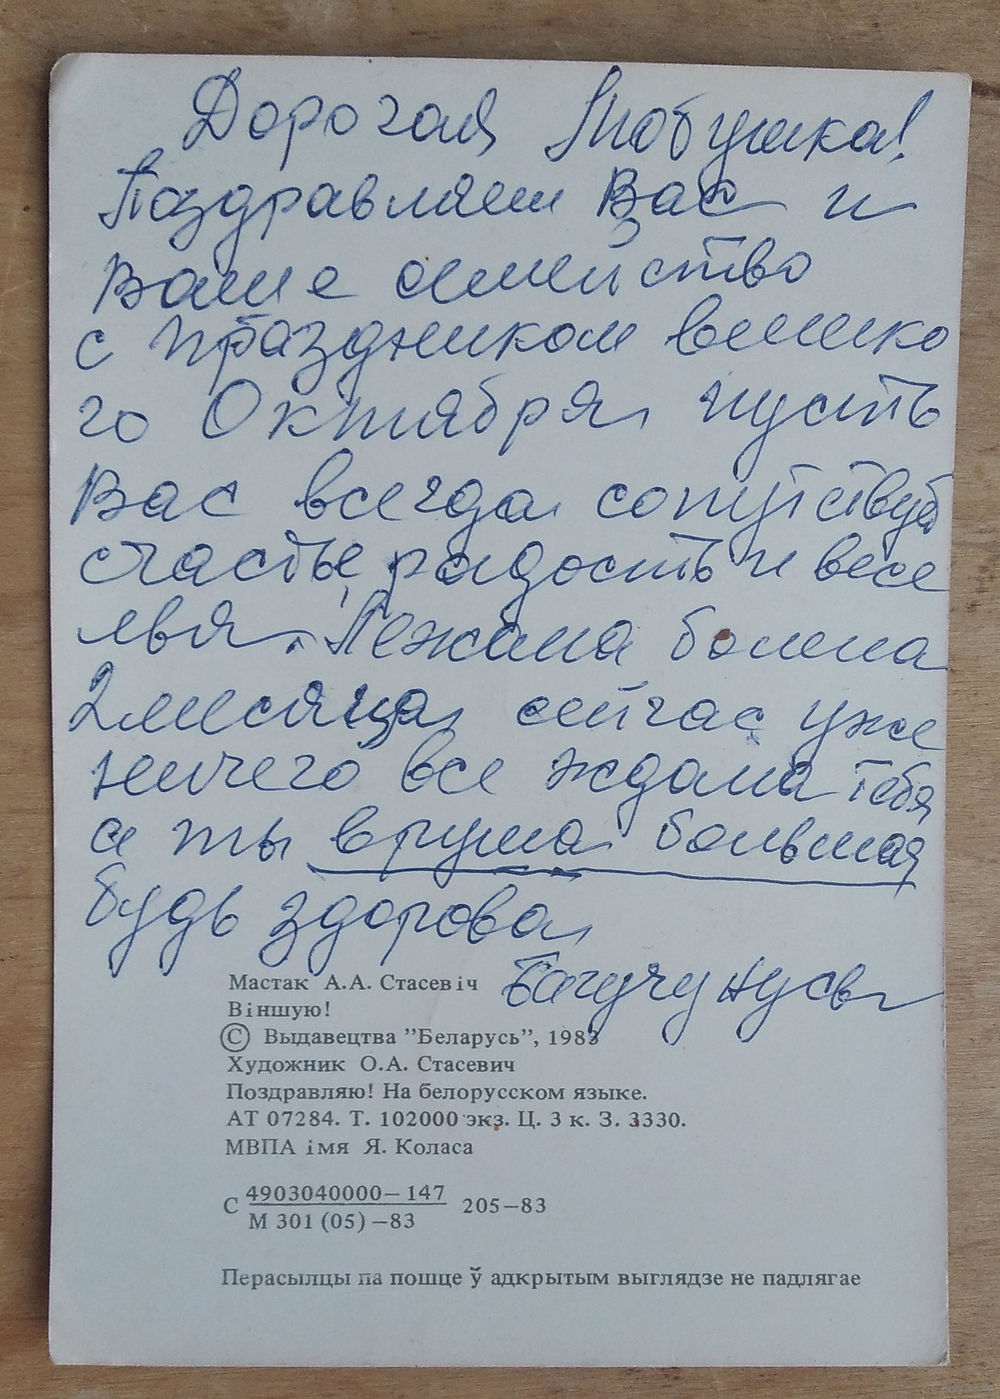 Дорогая Тобушка!
Поздравляем Вас и
Ваше семейство
с праздником велико
го Октября пусть
Вас всегда сопутствует
счастье, радость и весе
лья. Лежала болела
2 месяца сейчас уже
ничего все ждала тебя
а ты вруша большая
будь здорова
Мастак А.А. Стасевіч
Віншую!
© Выдавецтва "Беларусь", 1983
Художник О.А. Стасевич
Поздравляю! На белорусском языке.
АТ 07284. Т. 102000 экз. Ц. 3 к. З. 3330.
МВПА імя Я. Коласа
С 4903040000–147 205–83
М 301 (05) –83
Перасылцы па пошце ў адкрытым выглядзе не падлягае